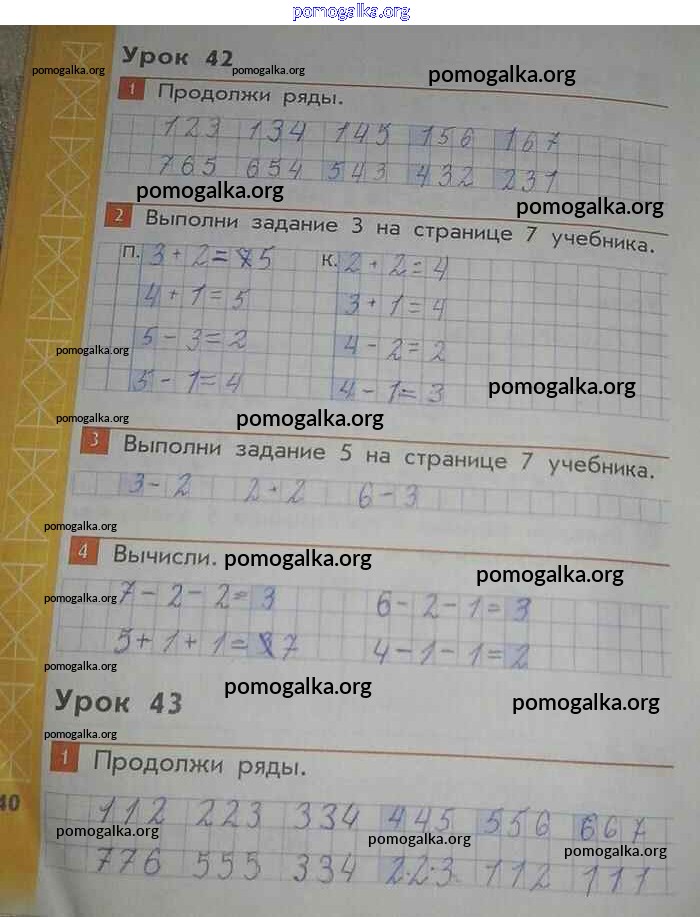 pomogalka.org
Урок 42
pomogalka.org pomogalka.org pomogalka.org
1 Продолжи ряды.
123 134 145 156 167
765 654 543 432 231
pomogalka.org pomogalka.org
2 Выполни задание 3 на странице 7 учебника.
П. 3+2=5 К. 2+2=4
4+1=5 3+1=4
5-3=2 4-2=2
pomogalka.org
5-1=4 4-1=3
pomogalka.org
pomogalka.org pomogalka.org
3 Выполни задание 5 на странице 7 учебника.
3-2 2+2 6-3
pomogalka.org
4 Вычисли. pomogalka.org
pomogalka.org
7-2-2=3 6-2-1=3
pomogalka.org
5+1+1=7 4-1-1=2
pomogalka.org
pomogalka.org pomogalka.org
Урок 43
pomogalka.org
1 Продолжи ряды.
40
112 223 334 445 556 667
pomogalka.org pomogalka.org pomogalka.org
776 555 334 223 112 111